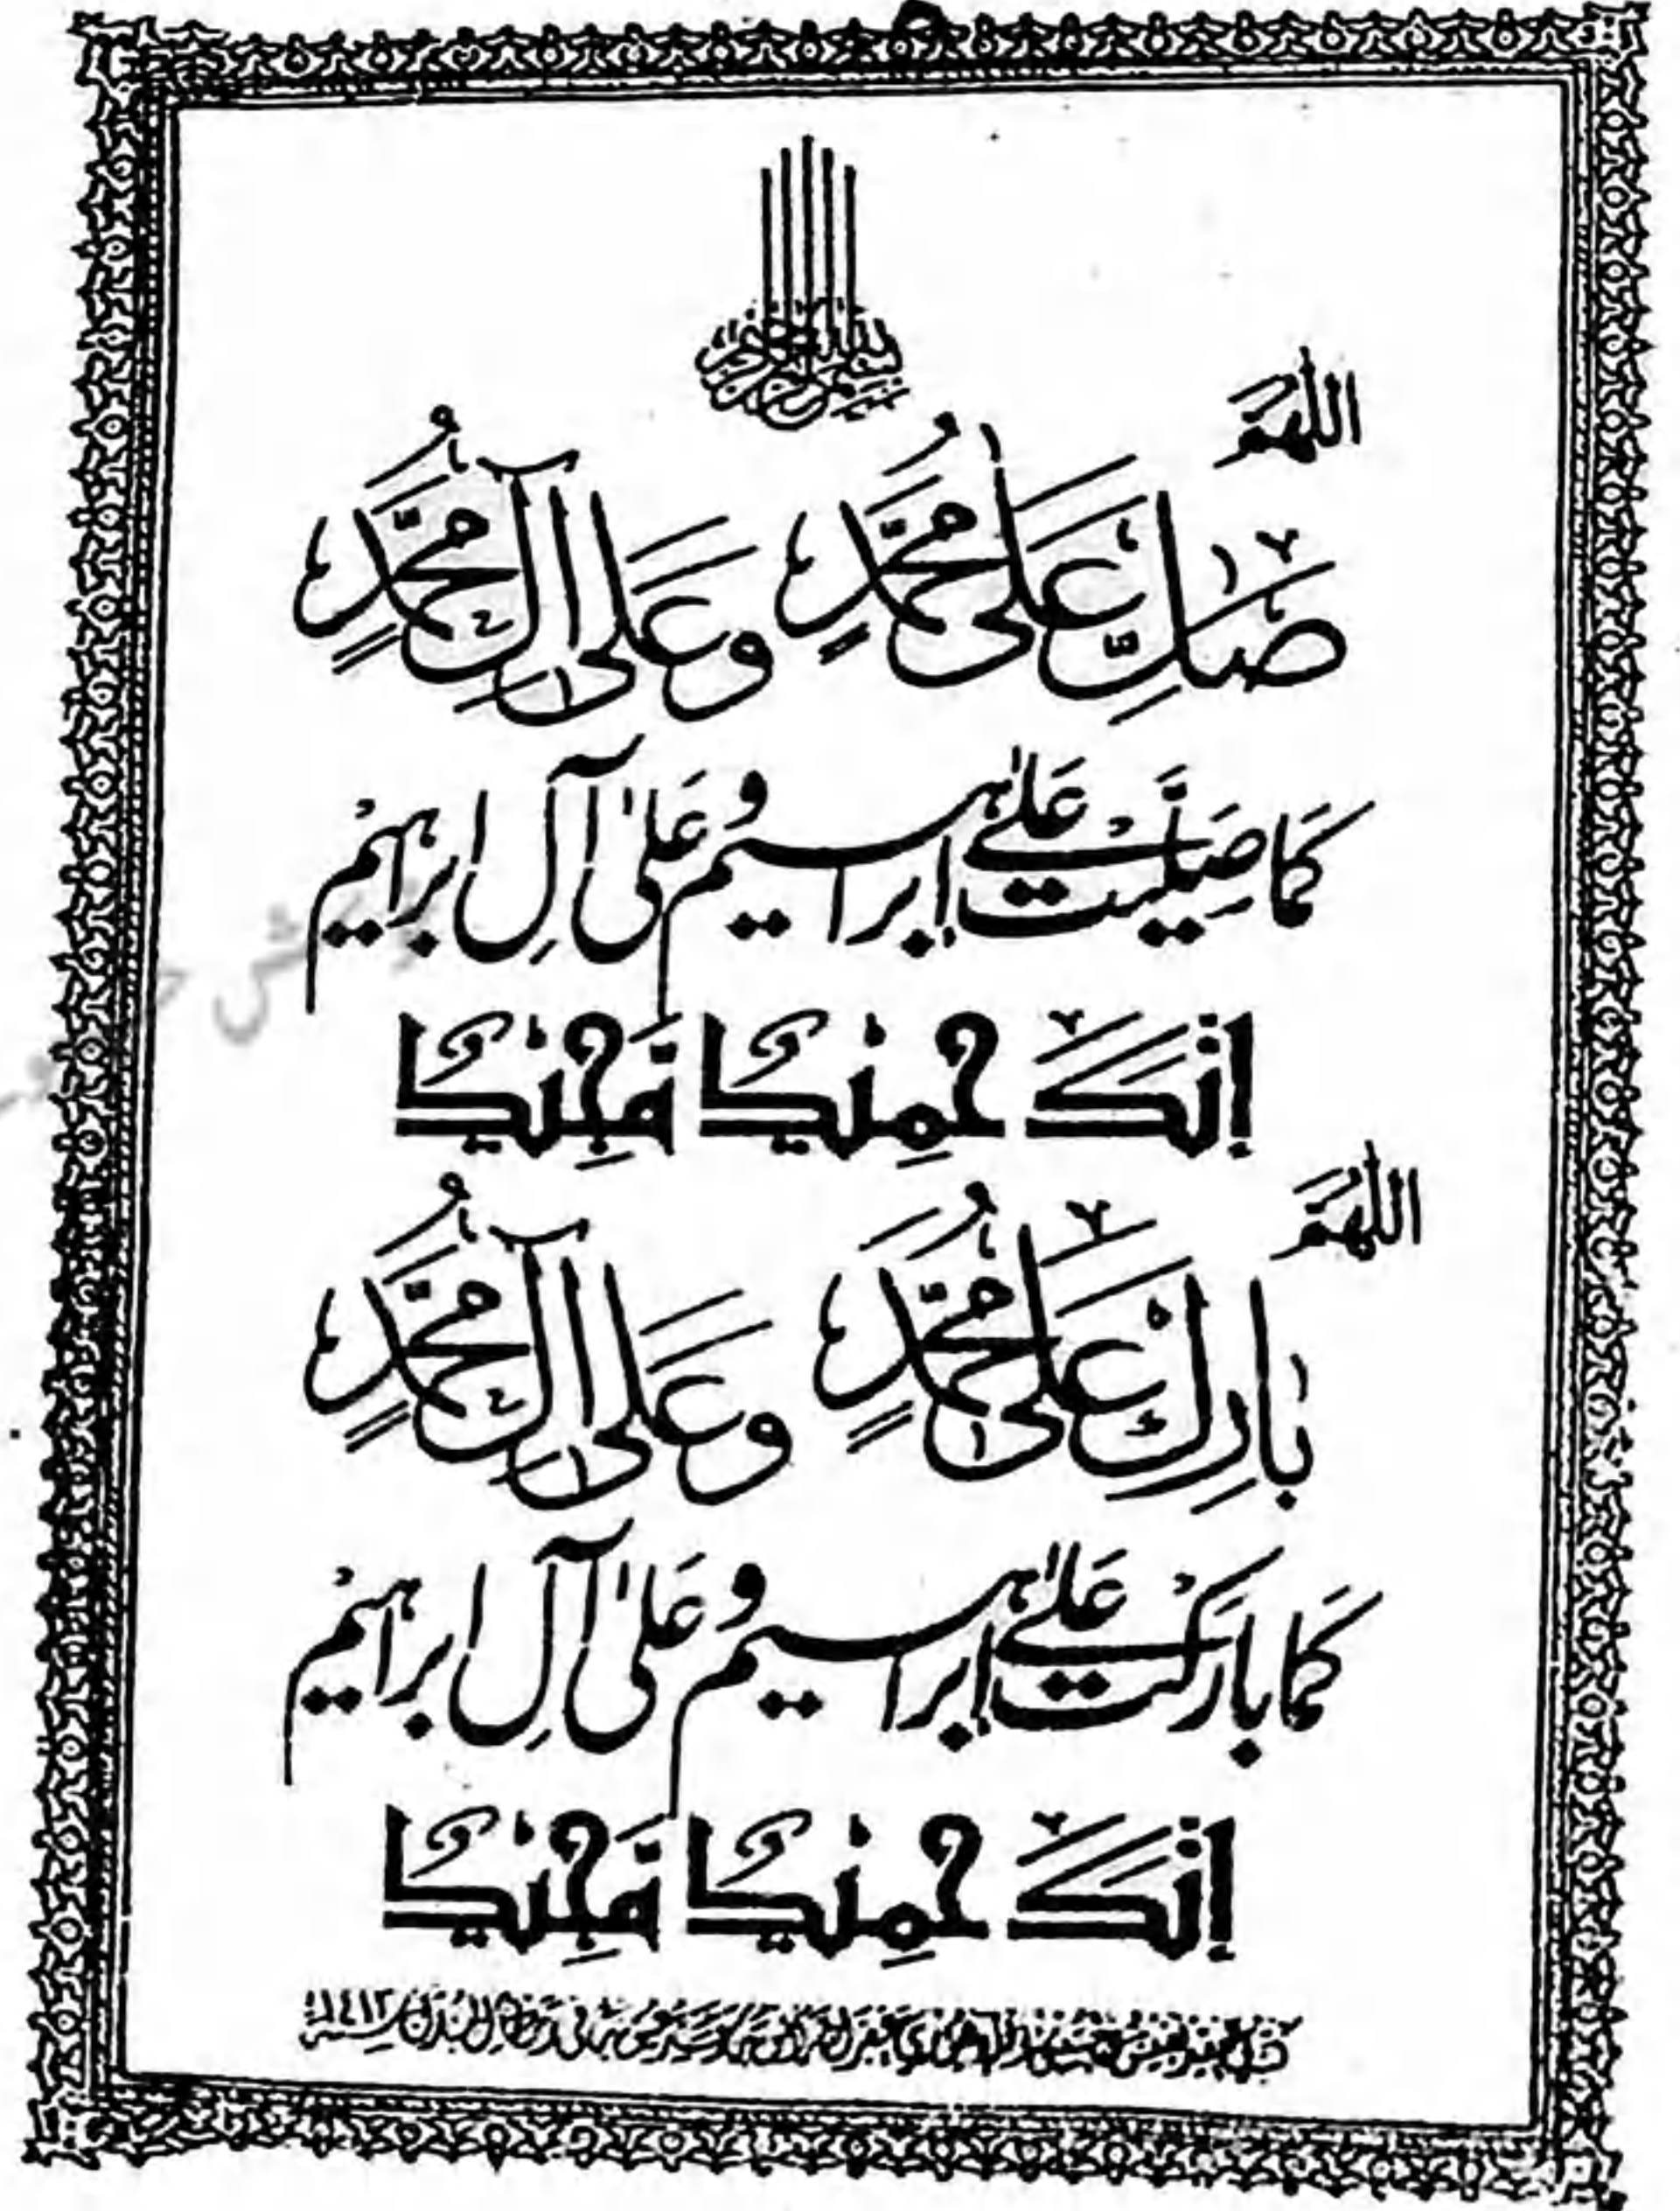 بسم الله الرحمن الرحيم
اللّٰهمَّ
صَلِّ عَلىٰ مُحَمَّدٍ وَعَلىٰ آلِ مُحَمَّدٍ
كَمَا صَلَّيْتَ عَلىٰ إبراهيم وَعَلىٰ آلِ ابراهيم
إنَّكَ حَمِيْدٌ مَّجِيْدٌ
اللّٰهمَّ
بَارِكْ عَلىٰ مُحَمَّدٍ وَعَلىٰ آلِ مُحَمَّدٍ
كَمَا بَارَكْتَ عَلىٰ إبراهيم وَعَلىٰ آلِ ابراهيم
إنَّكَ حَمِيْدٌ مَّجِيْدٌ
١٤١٢